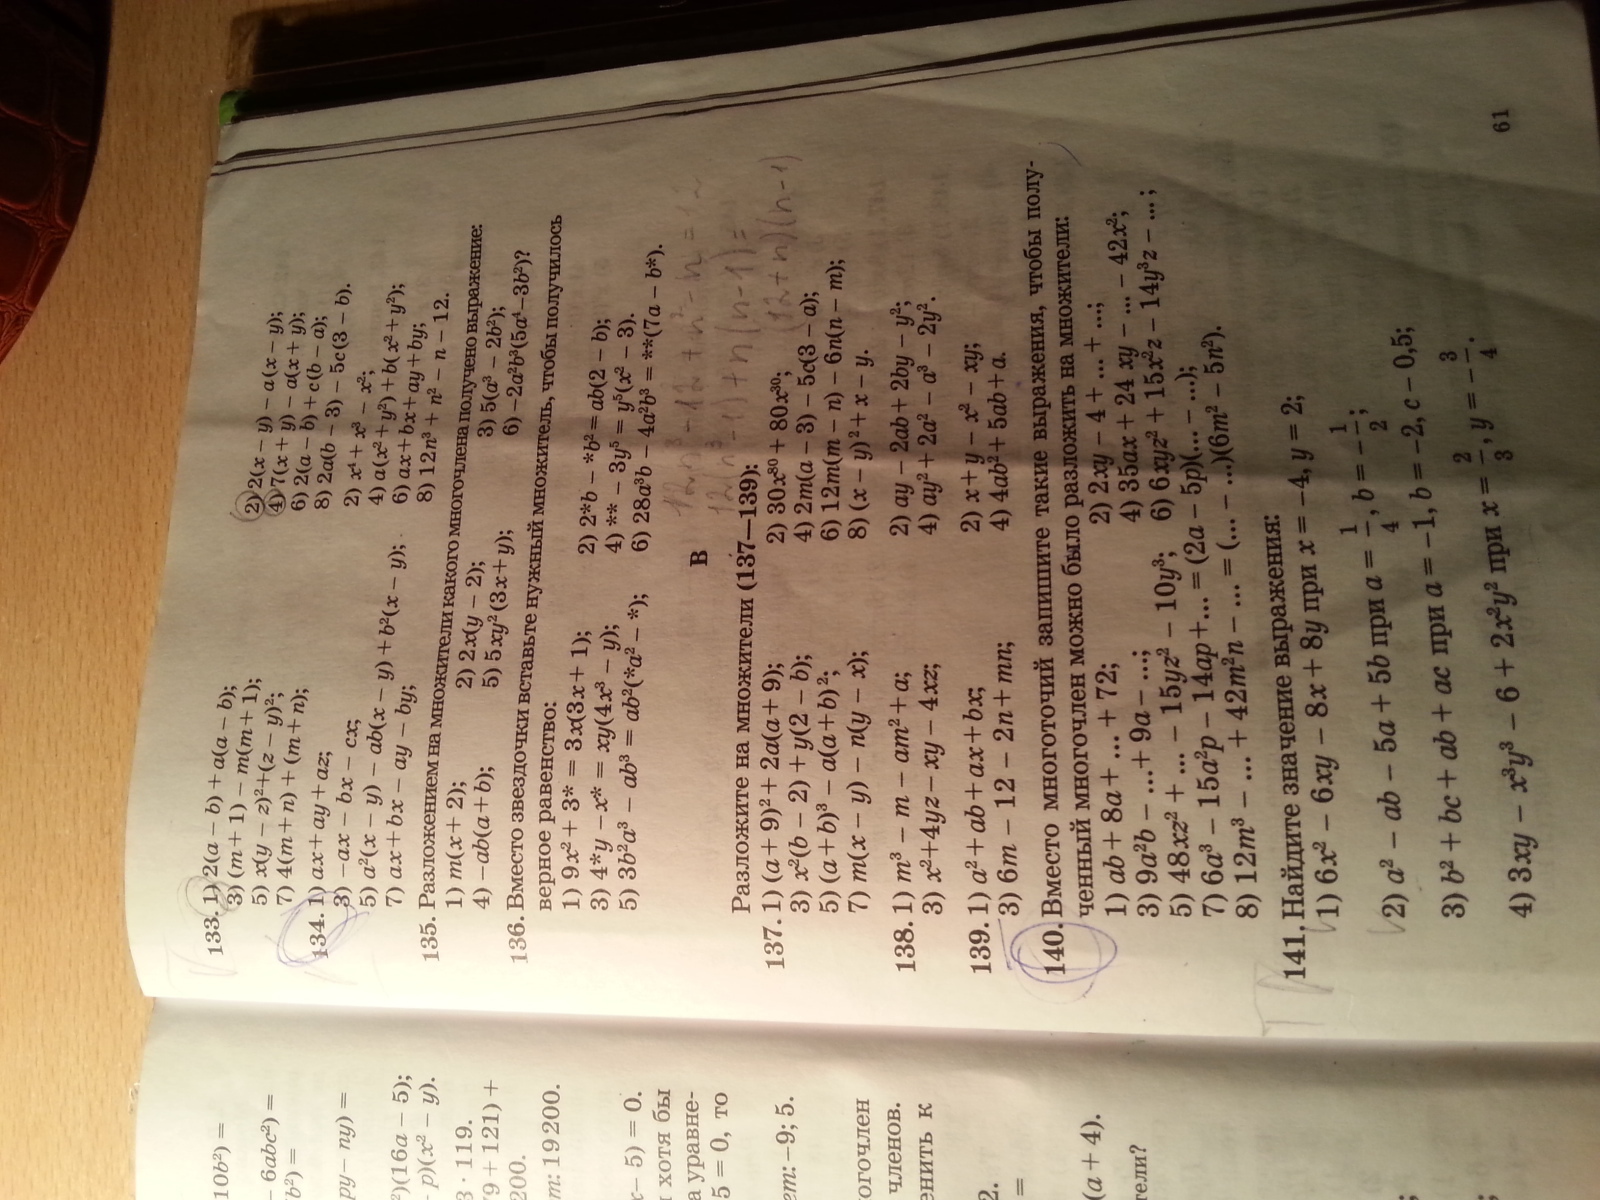 133. 1) 2(a − b) + a(a − b); 2) 2(x − y) − a(x − y);
3) (m + 1) − m(m + 1); 4) 7(x + y) − a(x + y);
5) x(y − z)² + (z − y)²; 6) 2(a − b) + c(b − a);
7) 4(m + n) + (m + n); 8) 2a(b − 3) − 5c(3 − b).
134. 1) ax + ay + az; 2) x⁴ + x³ − x²;
3) −ax − bx − cx; 4) a(x² + y²) + b(x² + y²);
5) a²(x − y) − ab(x − y) + b²(x − y); 6) ax + bx + ay + by;
7) ax + bx − ay − by; 8) 12n³ + n² − n − 12.
135. Разложением на множители какого многочлена получено выражение:
1) m(x + 2); 2) 2x(y − 2); 3) 5(a³ − 2b²);
4) −ab(a + b); 5) 5xy²(3x + y); 6) −2a²b³(5a⁴ − 3b²)?
136. Вместо звездочки вставьте нужный множитель, чтобы получилось
верное равенство:
1) 9x² + 3* = 3x(3x + 1); 2) 2*b − *b² = ab(2 − b);
3) 4*y − x* = xy(4x³ − y); 4) ** − 3y⁵ = y⁵(x² − 3).
5) 3b²a³ − ab³ = ab²(*a² − *); 6) 28a³b − 4a²b³ = **(7a − b*).
В
Разложите на множители (137—139):
137. 1) (a + 9)² + 2a(a + 9); 2) 30x⁸⁰ + 80x³⁰;
3) x²(b − 2) + y(2 − b); 4) 2m(a − 3) − 5c(3 − a);
5) (a + b)³ − a(a + b)²; 6) 12m(m − n) − 6n(n − m);
7) m(x − y) − n(y − x); 8) (x − y)² + x − y.
138. 1) m³ − m − am² + a; 2) ay − 2ab + 2by − y²;
3) x² + 4yz − xy − 4xz; 4) ay² + 2a² − a³ − 2y².
139. 1) a² + ab + ax + bx; 2) x + y − x² − xy;
3) 6m − 12 − 2n + mn; 4) 4ab² + 5ab + a.
140. Вместо многоточий запишите такие выражения, чтобы полу-
ченный многочлен можно было разложить на множители:
1) ab + 8a + ... + 72; 2) 2xy − 4 + ... + ...;
3) 9a²b − ... + 9a − ...; 4) 35ax + 24 xy − ... − 42x²;
5) 48xz² + ... − 15yz² − 10y³; 6) 6xyz² + 15x²z − 14y³z − ... ;
7) 6a³ − 15a²p − 14ap + ... = (2a − 5p)(... − ...);
8) 12m³ − ... + 42m²n − ... = (... − ...)(6m² − 5n²).
141. Найдите значение выражения:
1) 6x² − 6xy − 8x + 8y при x = −4, y = 2;
2) a² − ab − 5a + 5b при a = 1/4, b = −1/2;
3) b² + bc + ab + ac при a = −1, b = −2, c − 0,5;
4) 3xy − x³y³ − 6 + 2x²y² при x = 2/3, y = −3/4.
61
10b²) =
− 6abc²) =
b²) =
py − ny) =
²)(16a − 5);
− p)(x² − y).
3 · 119.
9 + 121) +
200.
т: 19 200.
x − 5) = 0.
хотя бы
а уравне-
5 = 0, то
ет: −9; 5.
огочлен
членов.
енить к
2.
=
(a + 4).
тели?